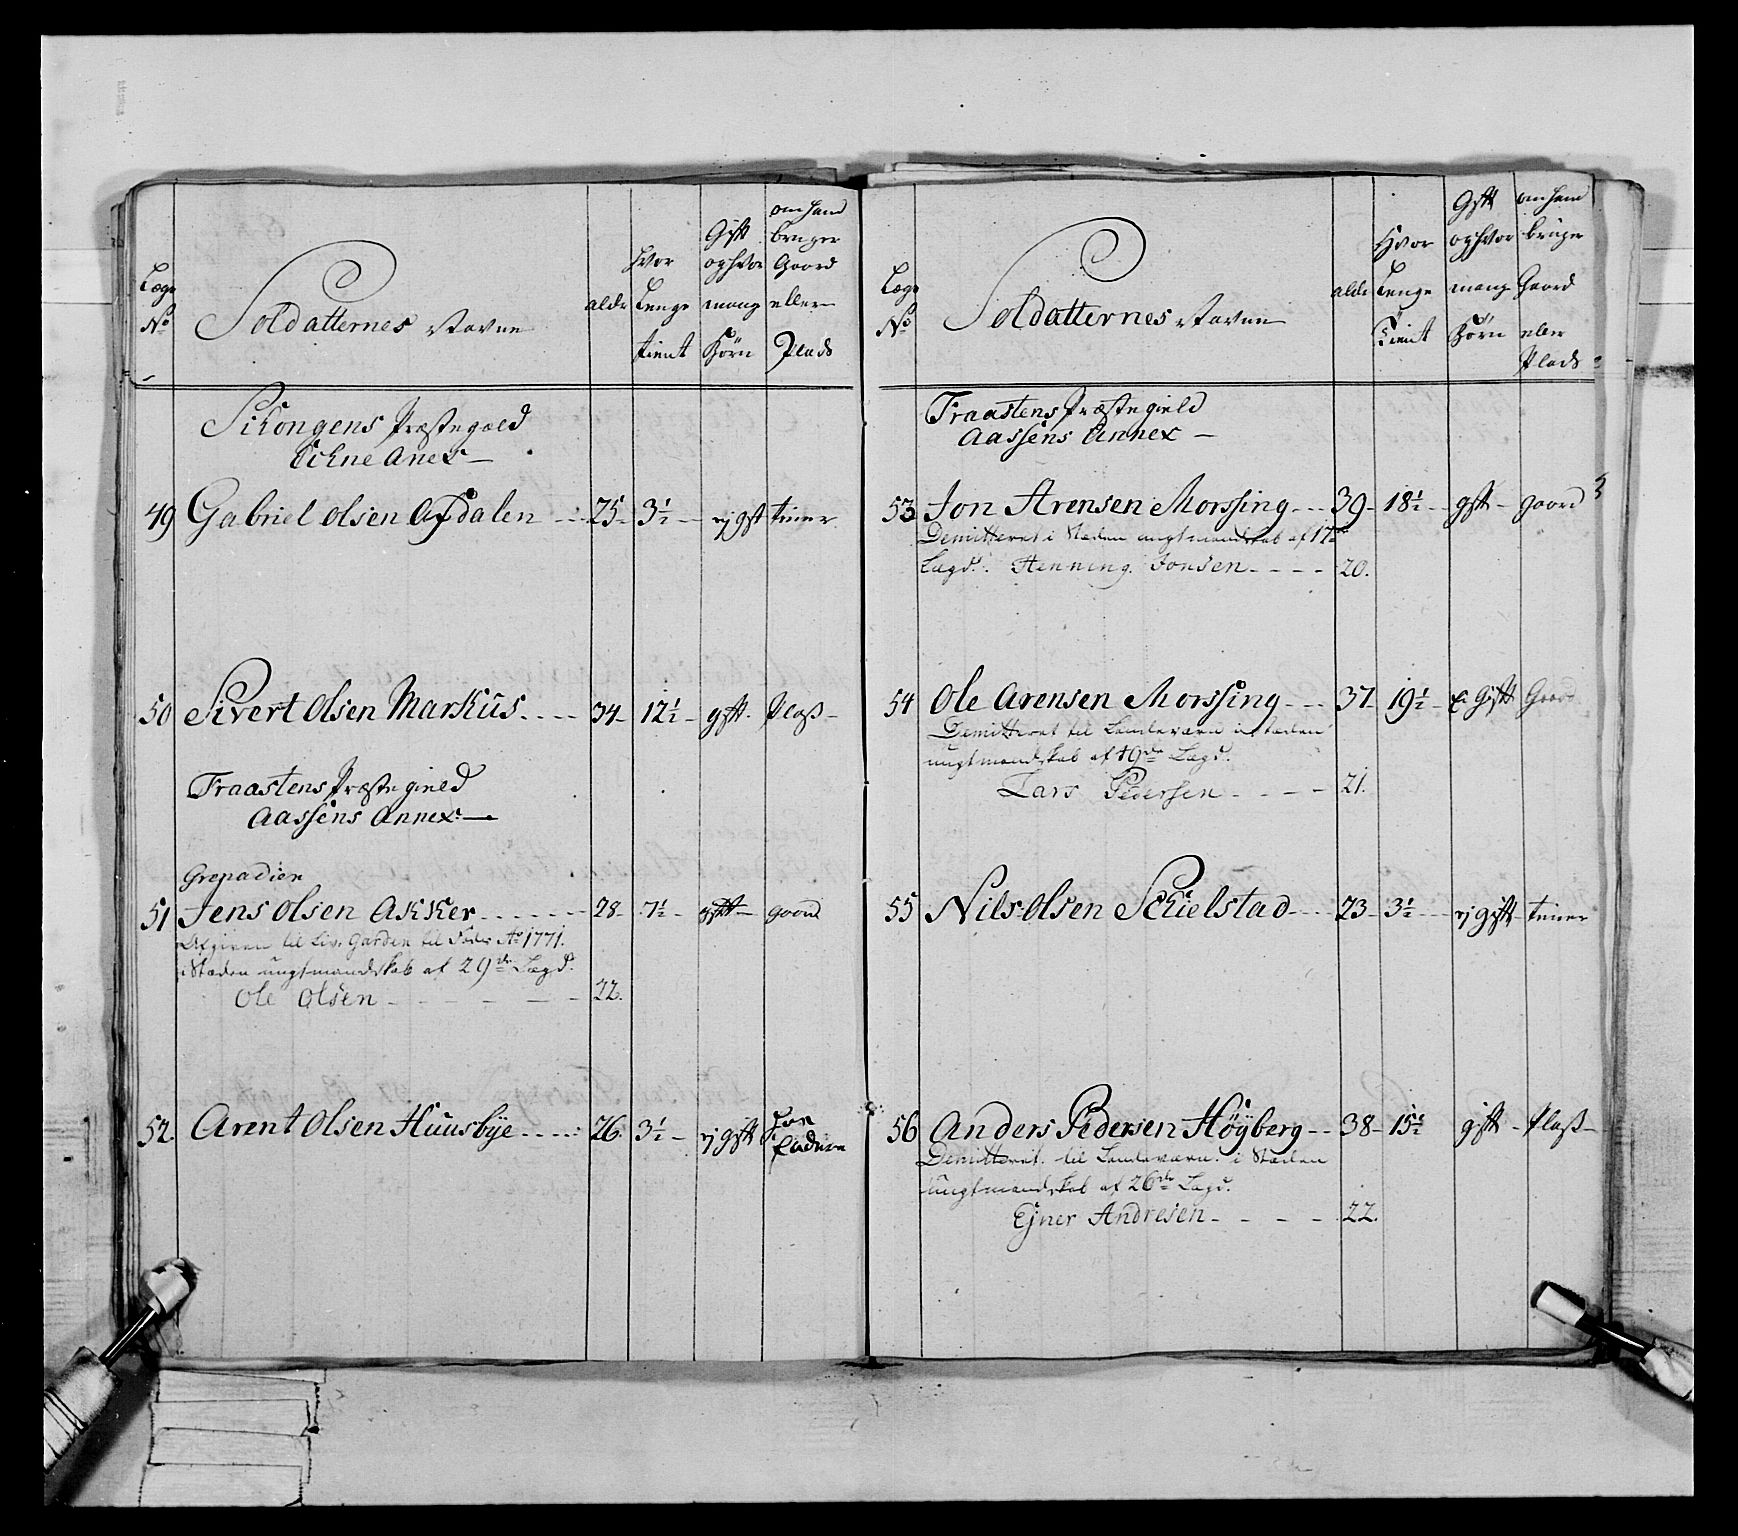 Lægs No
Soldatternes Navne
alder
hvor Lenge tient
Gift og hvor mang Börn
om hand bruger Gaard eller Plads
Schongens Præstegæld
Eckne Anex
49 Gabriel Olsen Afdalen 25 3½ ej gft tiener
50 Sivert Olsen Markûs 34 12½ gift Plads
Fraastens Præstegield
Aassens Annex
Grenadier
51 Jens Olsen Akker 28 7½ gift gaard
Afgiven til Liv Garden til Fods Ao 1771.
i Stæden ungtmandskab af 29de Lægd.
Ole Olsen 22.
52 Arent Olsen Huusbye 26 3½ ej gift hos Faderen
Lægs No
Soldatternes Navne
alder
Hvor Lenge Tient
Gift og hvor mang Börn
om hand brüger Gaard eller Plads
Fraastens Præstegield
Aassens Annex
53 Jon Arensen Morssing 39 18½ gift gaard
Demitteret i Stæden ungtmandskab af 17de
Lægd. Henning Jonsen 20.
54 Ole Arensen Morssing 37 19½ E Gift Gaard
Demitteret til Landeværn i stæden
ungtmandskab af 19de Lægd.
Lars Pedersen 21.
55 Nils Olsen Schielstad 23 3½ ej gift tiener
56 Anders Pedersen Höÿberg 38 15½ gift Plads
Demitteret til Landeværn i Stæden
ungtmandskab af 26de Lægd.
Ejner Andresen 22.